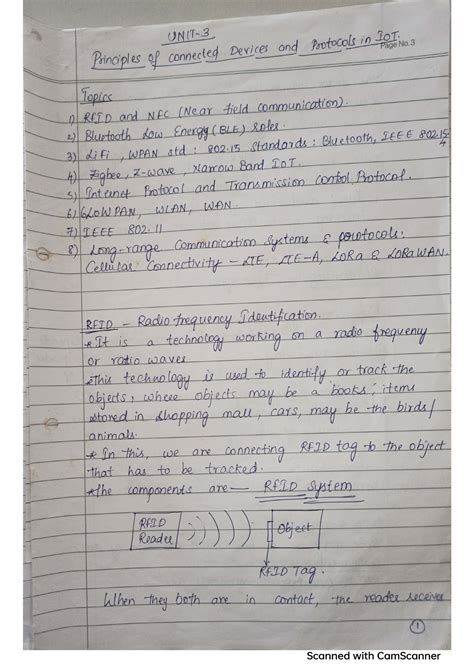 UNIT-3
Principles of connected Devices and Protocols in IOT.
Page No. 3
Topics
1) RFID and NFC (Near field communication).
2) Bluetooth Low Energy (BLE) Roles.
3) LiFi, WPAN std : 802.15 Standards : Bluetooth, IEEE 802.15.4
4) Zigbee, Z-wave, Narrow Band IOT.
5) Internet Protocol and Transmission Control Protocol.
6) 6LOWPAN, WLAN, WAN.
7) IEEE 802.11
8) Long-range Communication Systems & protocols:
Cellular Connectivity - LTE, LTE-A, LoRa & LoRaWAN.
RFID - Radio frequency Identification.
* It is a technology working on a radio frequency
or radio waves
* This technology is used to identify or track the
objects, where objects may be a books, items
stored in shopping mall, cars, may be the birds/
animals.
* In this, we are connecting RFID tag to the object
that has to be tracked.
* The components are — RFID System
RFID
Reader
Object
RFID Tag.
When they both are in contact, the reader receives
1
Scanned with CamScanner